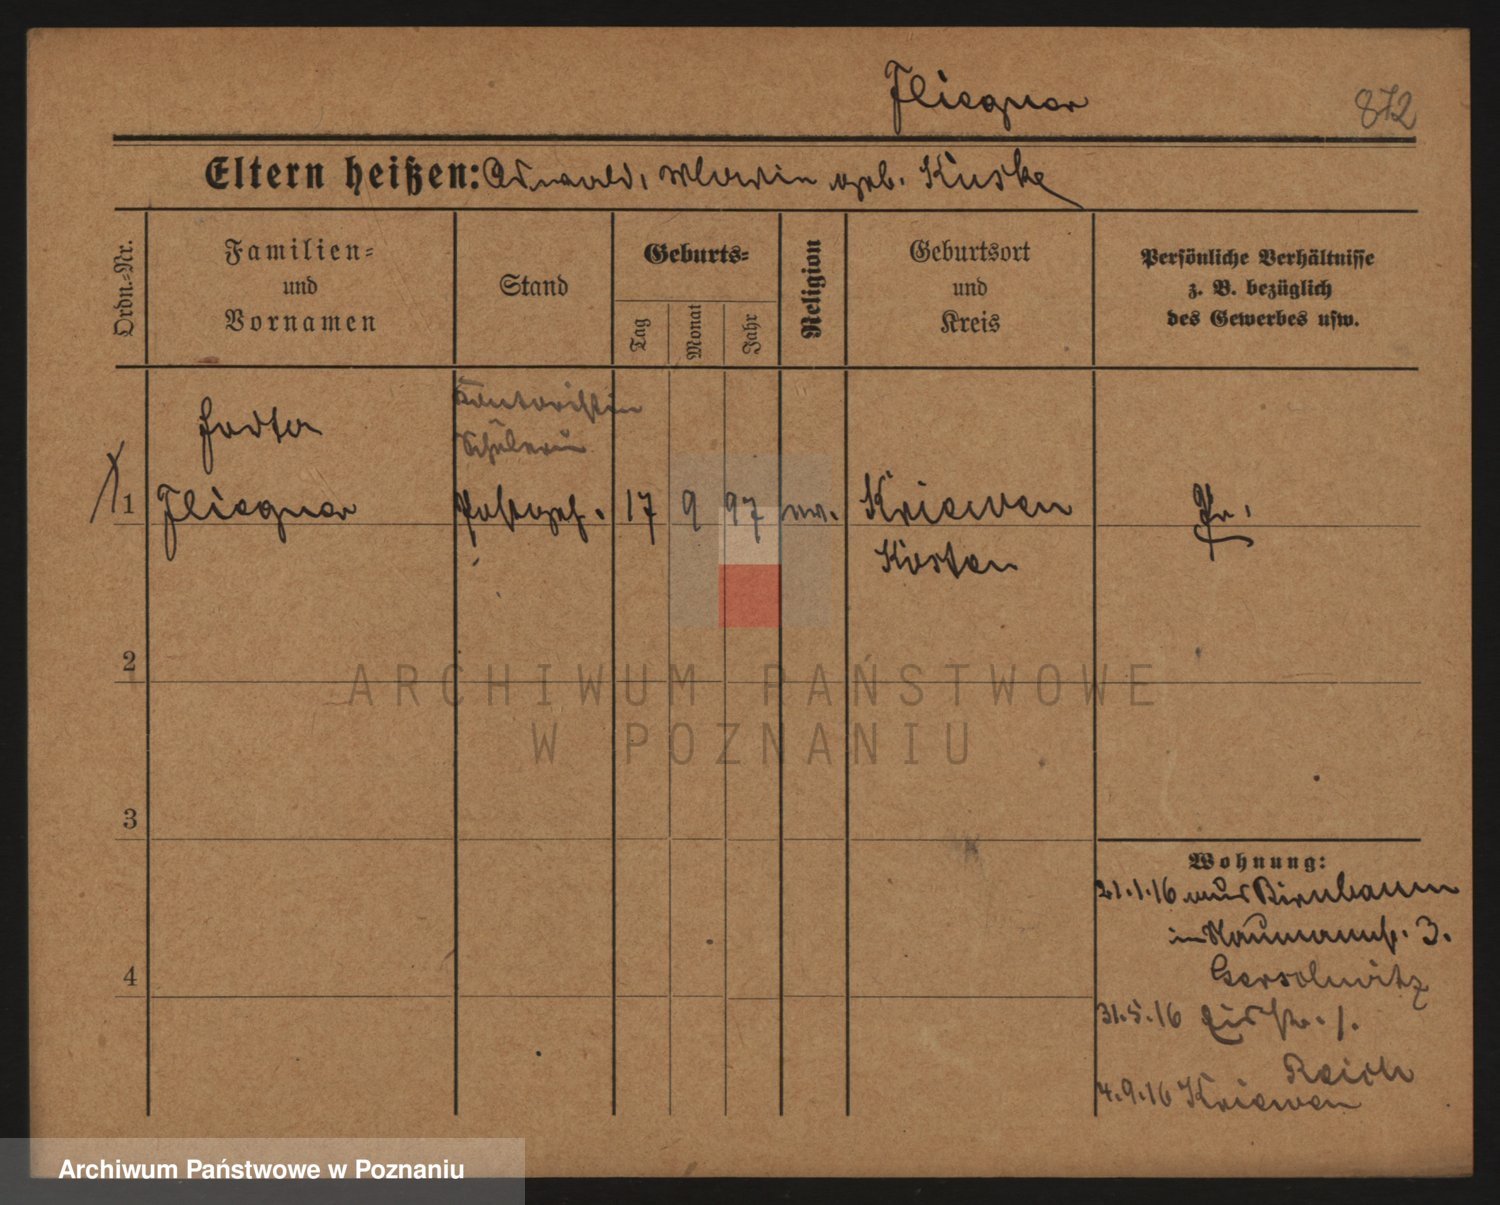 Fliegner
872
Eltern heißen: Oswald, Maria geb. Kuske
Ordn.-Nr.
Familien-
und
Vornamen
Stand
Geburts-
Tag
Monat
Jahr
Religion
Geburtsort
und
Kreis
Persönliche Verhältnisse
z. B. bezüglich
des Gewerbes usw.
Kontoristin
Herta
Schülerin
1 Fliegner Postgeh. 17 9 97 ev. Kriewen Pr.
Kosten
2
ARCHIWUM PAŃSTWOWE
W POZNANIU
3
Wohnung:
21.1.16 aus Birnbaum
in Naumannstr. 3.
4
31.5.16
Reich
4.9.16 Kriewen
Archiwum Państwowe w Poznaniu